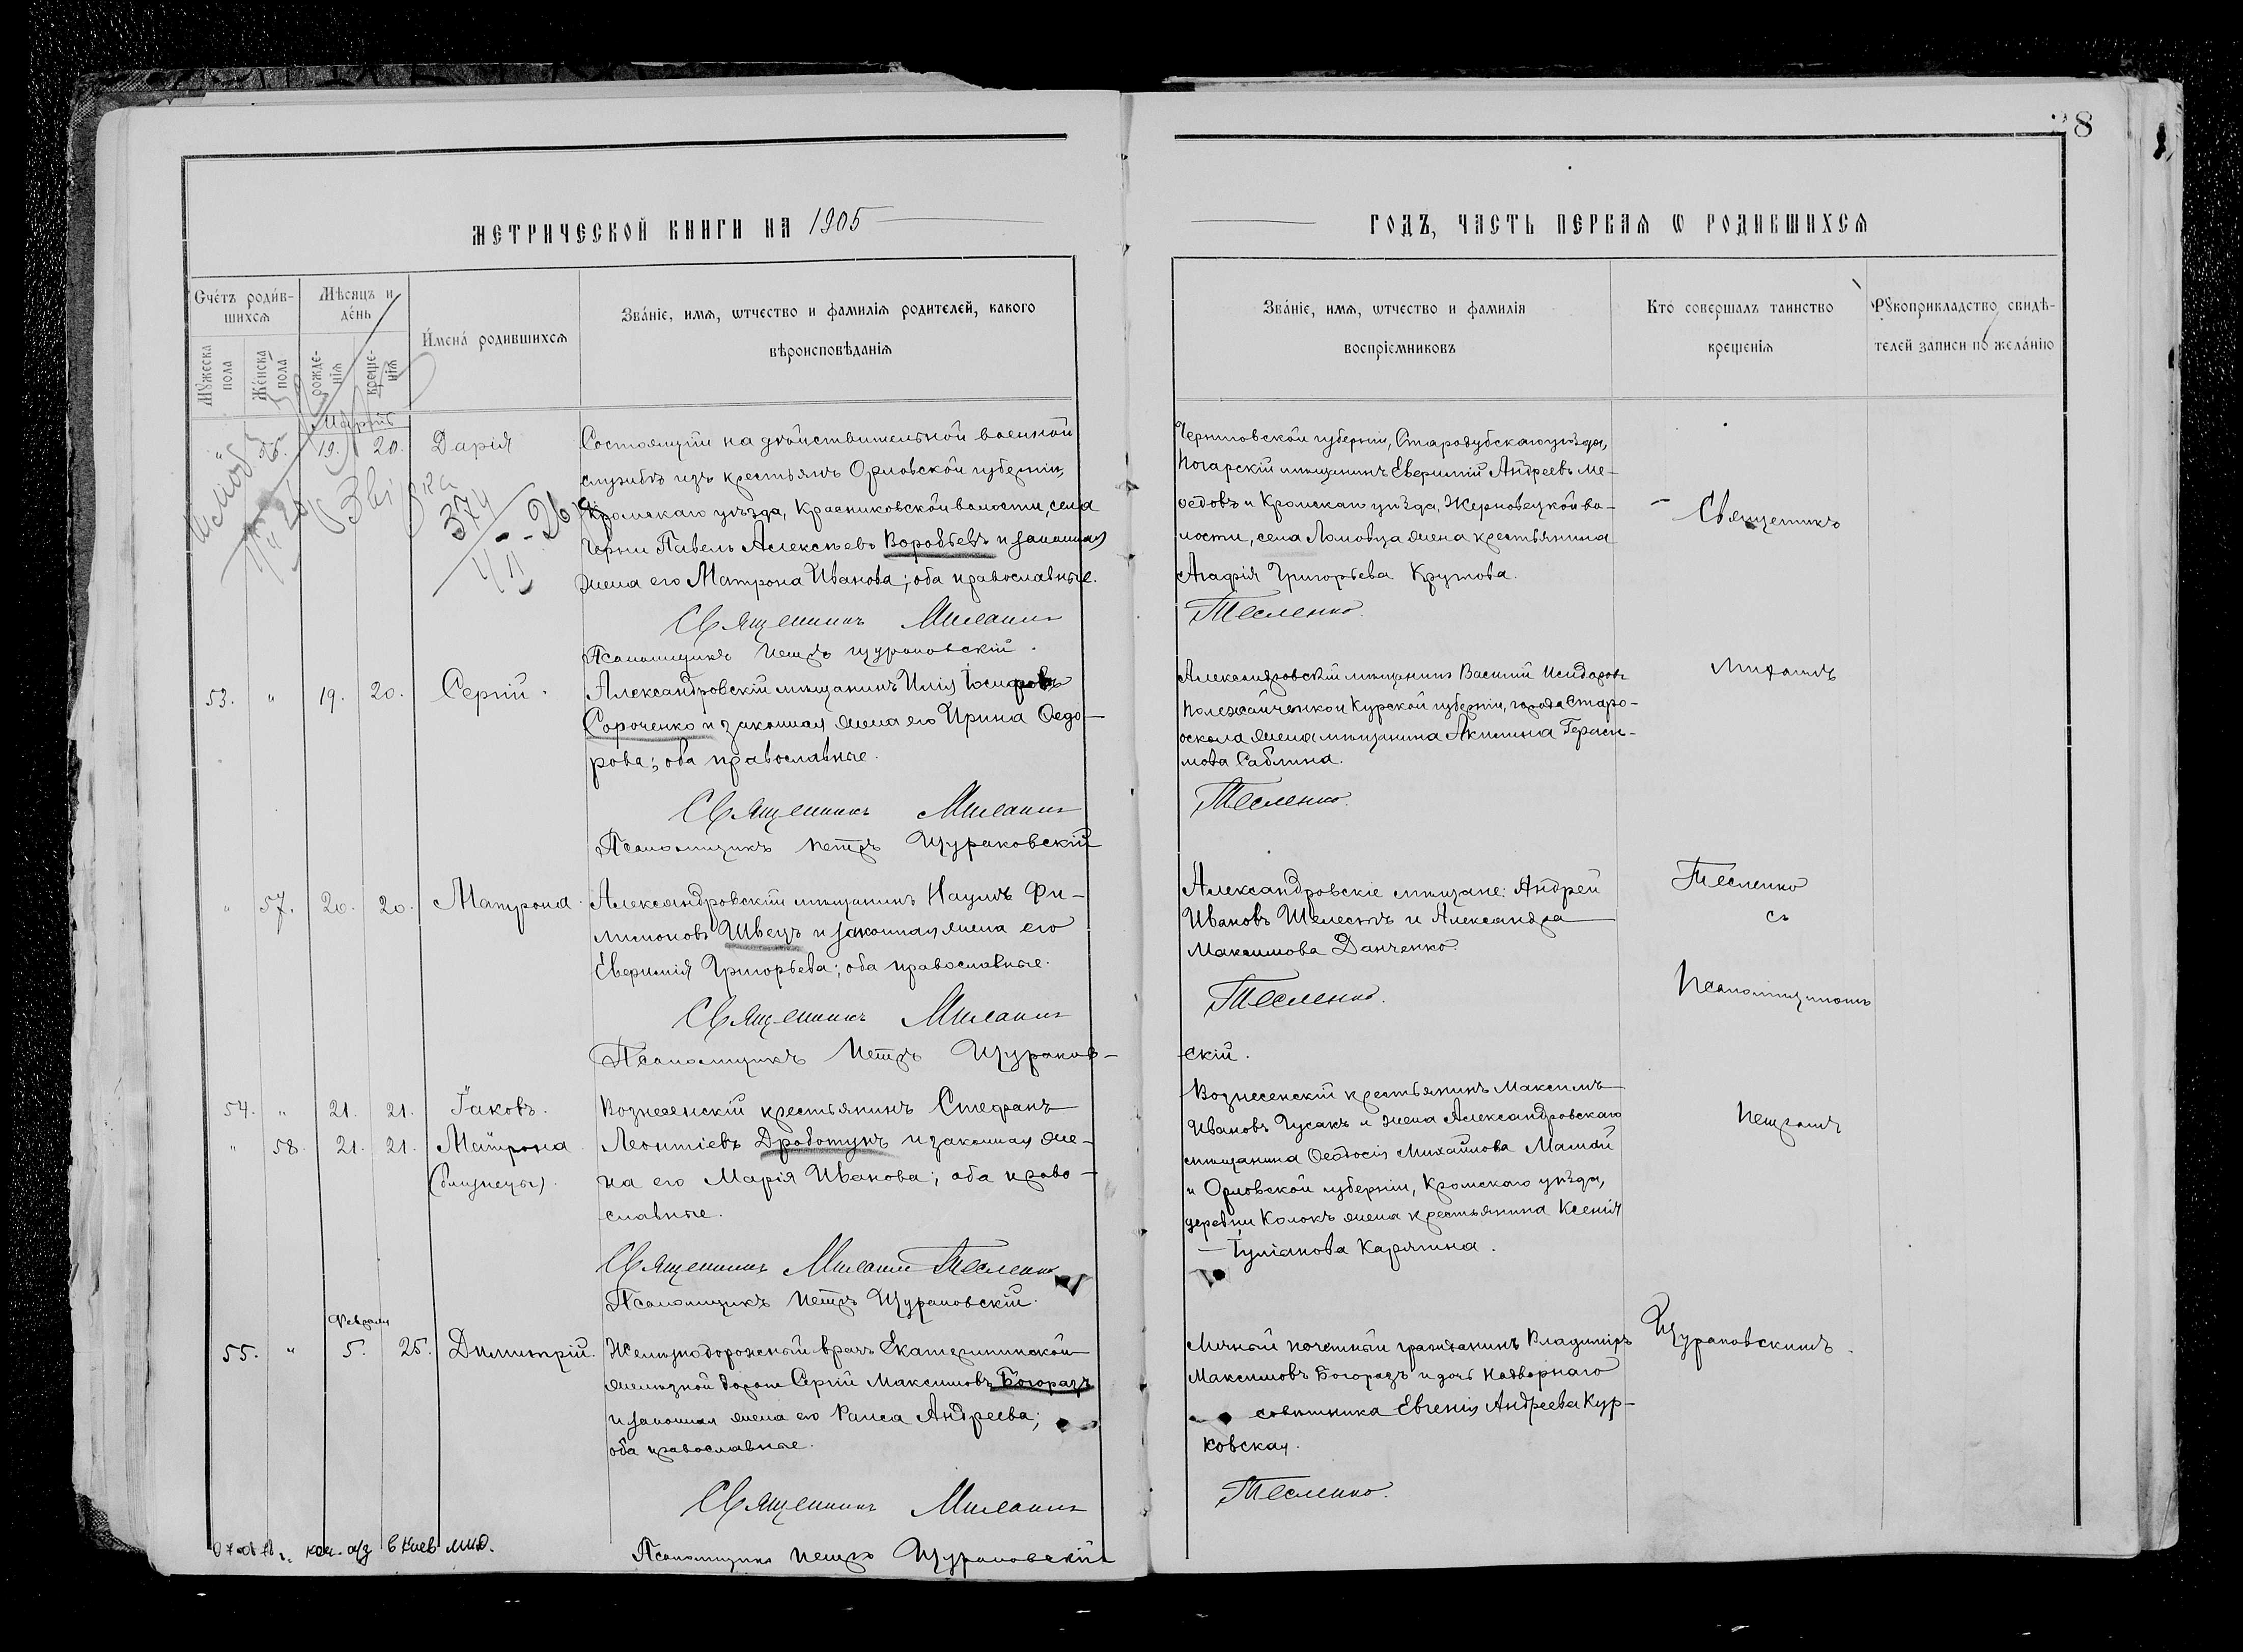 28
МЕТРИЧЕСКОЙ КНИГИ НА 1905
ГОДЪ, ЧАСТЬ ПЕРВАЯ Ѡ РОДИВШИХСЯ
Счетъ родив-
шихся
Мужеска
пола
Женска
пола
Мѣсяцъ и
день
рожде-
нія
креще-
нія
Имена родившихся
Званіе, имя, ѡтчество и фамилія родителей, какого
вѣроисповѣданія
Званіе, имя, ѡтчество и фамилія
воспріемниковъ
Кто совершалъ таинство
крещенія
Рукоприкладство свидѣ-
телей записи по желанію
Мартъ
" 56. 19. 20. Дарія
Состоящій на дѣйствительной военной
службѣ изъ крестьянъ Орловской губерніи,
Кромскаго уѣзда, Красниковской волости, села
Черни Павелъ Алексѣевъ Воробьевъ и законная
жена его Матрона Иванова; оба православные.
Священникъ Михаилъ
Псаломщикъ Петръ Щураковскій.
374
Черниговской губерніи, Стародубскаго уѣзда,
Погарскій мѣщанинъ Евфимій Андреевъ Ме-
ѳедовъ и Кромскаго уѣзда, Жерновецкой во-
лости, села Ломовца жена крестьянина
Агафія Григорьева Крутова.
Тесленко.
Священникъ
53. " 19. 20. Сергій.
Александровскій мѣщанинъ Илія
Сороченко и законная жена его Ирина Ѳедо-
рова; оба православные.
Священникъ Михаилъ
Псаломщикъ Петръ Щураковскій
Александровскій мѣщанинъ Василій Исидоровъ
Полежайченко и Курской губерніи, города Старо-
оскола жена мѣщанина Акилина Гераси-
мова Саблина.
Тесленко.
Михаилъ
" 57. 20. 20. Матрона
Александровскій мѣщанинъ Наумъ Фи-
лимоновъ Швецъ и законная жена его
Евфимія Григорьева; оба православные.
Священникъ Михаилъ
Псаломщикъ Петръ Щураков-
Александровскіе мѣщане: Андрей
Ивановъ Шелестъ и Александра
Максимова Данченко.
Тесленко.
скій.
Тесленко
съ
Псаломщикомъ
54. " 21. 21. Іаковъ.
" 58. 21. 21. Матрона
(близнецы).
Вознесенскій крестьянинъ Стефанъ
Леонтіевъ Дроботунъ и законная же-
на его Марія Иванова; оба право-
славные.
Священникъ Михаилъ Тесленко
Псаломщикъ Петръ Щураковскій.
Вознесенскій крестьянинъ Максимъ
Ивановъ Гусакъ и жена Александровскаго
мѣщанина Ѳеодосія Михайлова Мамай
и Орловской губерніи, Кромскаго уѣзда,
деревни Колокъ жена крестьянина Ксенія
Іуліанова Карягина.
Петромъ
Февраля
55. " 5. 25. Димитрій.
Желѣзнодорожный врачъ Екатерининской
желѣзной дороги Сергій Максимовъ Богоразъ
и законная жена его Раиса Андреева;
оба православные.
Священникъ Михаилъ
Псаломщикъ Петръ Щураковскій
Личный почетный гражданинъ Владиміръ
Максимовъ Богоразъ и дочь Надворнаго
совѣтника Евгенія Андреева Кур-
ковская.
Тесленко.
Щураковскимъ.